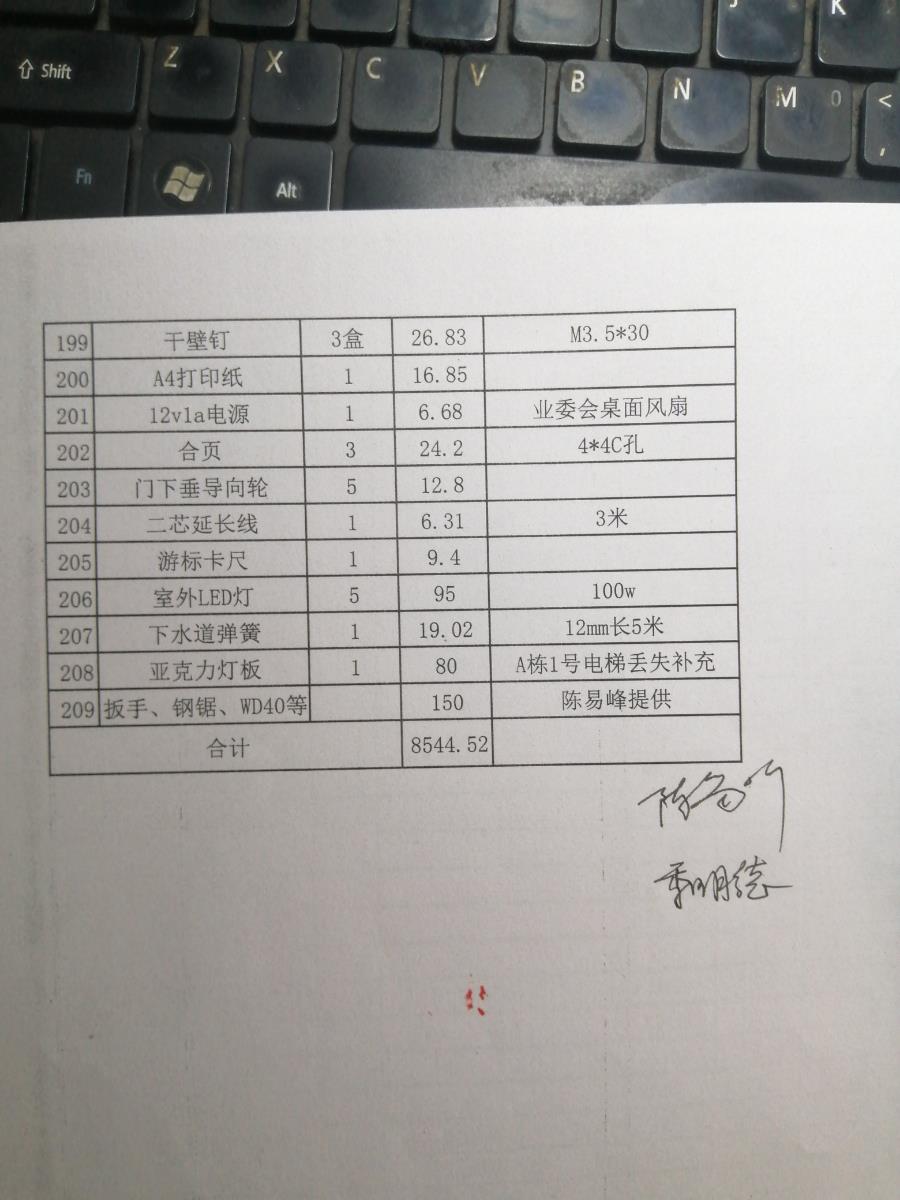 J K
Shift Z X C V B N M 0 <
,
Fn Alt
199 干壁钉 3盒 26.83 M3.5*30
200 A4打印纸 1 16.85
201 12v1a电源 1 6.68 业委会桌面风扇
202 合页 3 24.2 4*4C孔
203 门下垂导向轮 5 12.8
204 二芯延长线 1 6.31 3米
205 游标卡尺 1 9.4
206 室外LED灯 5 95 100w
207 下水道弹簧 1 19.02 12mm长5米
208 亚克力灯板 1 80 A栋1号电梯丢失补充
209 扳手、钢锯、WD40等 150 陈易峰提供
合计 8544.52